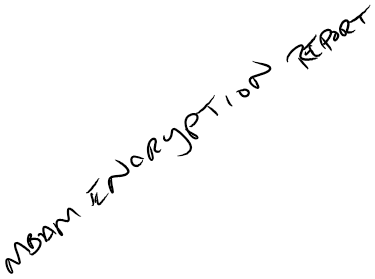 MBAM ENCRYPTION REPORT